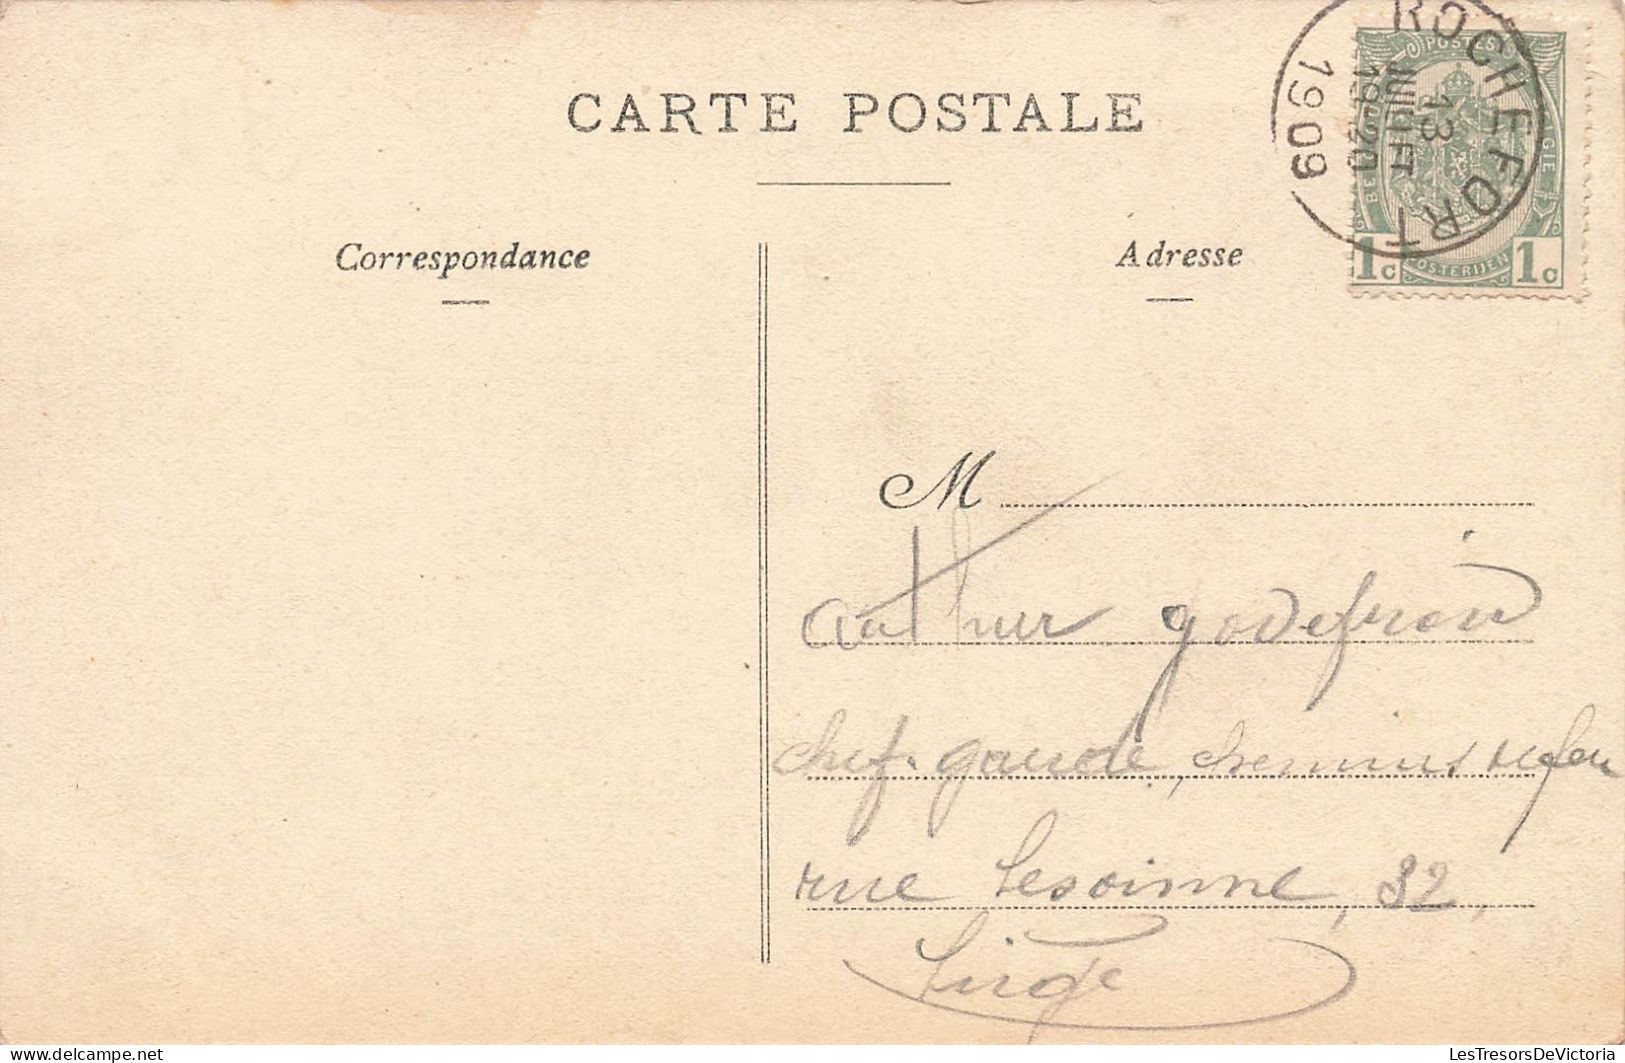 CARTE POSTALE
Correspondance
Adresse
ROCHEFORT
13
JUILLET
19-20
1909
POSTES
BELGIE
1c POSTERIJEN 1c
M
Arthur Godefroid
chef-garde, chemins de fer
rue Lesoinne, 32,
Liège
www.delcampe.net
LesTresorsDeVictoria